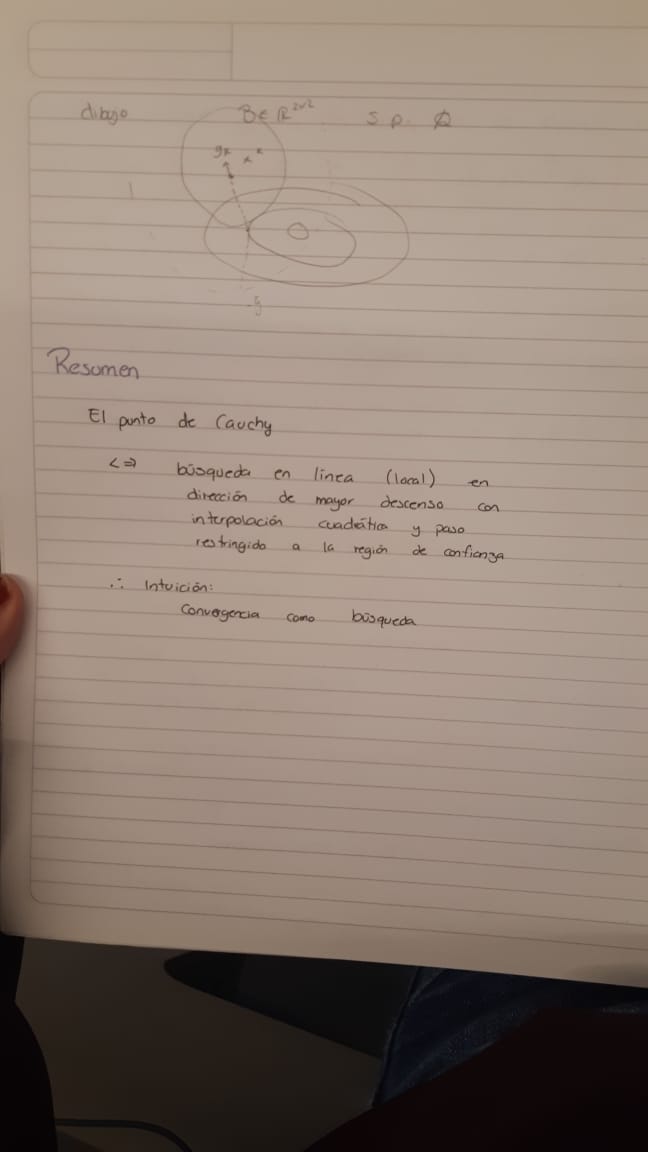 dibujo B ∈ ℝ²ˣ² s.p.
gₖ xₖ
Resumen
El punto de Cauchy
<=> búsqueda en línea (local) en
dirección de mayor descenso con
interpolación cuadrática y paso
restringido a la región de confianza
∴ Intuición:
Convergencia como búsqueda